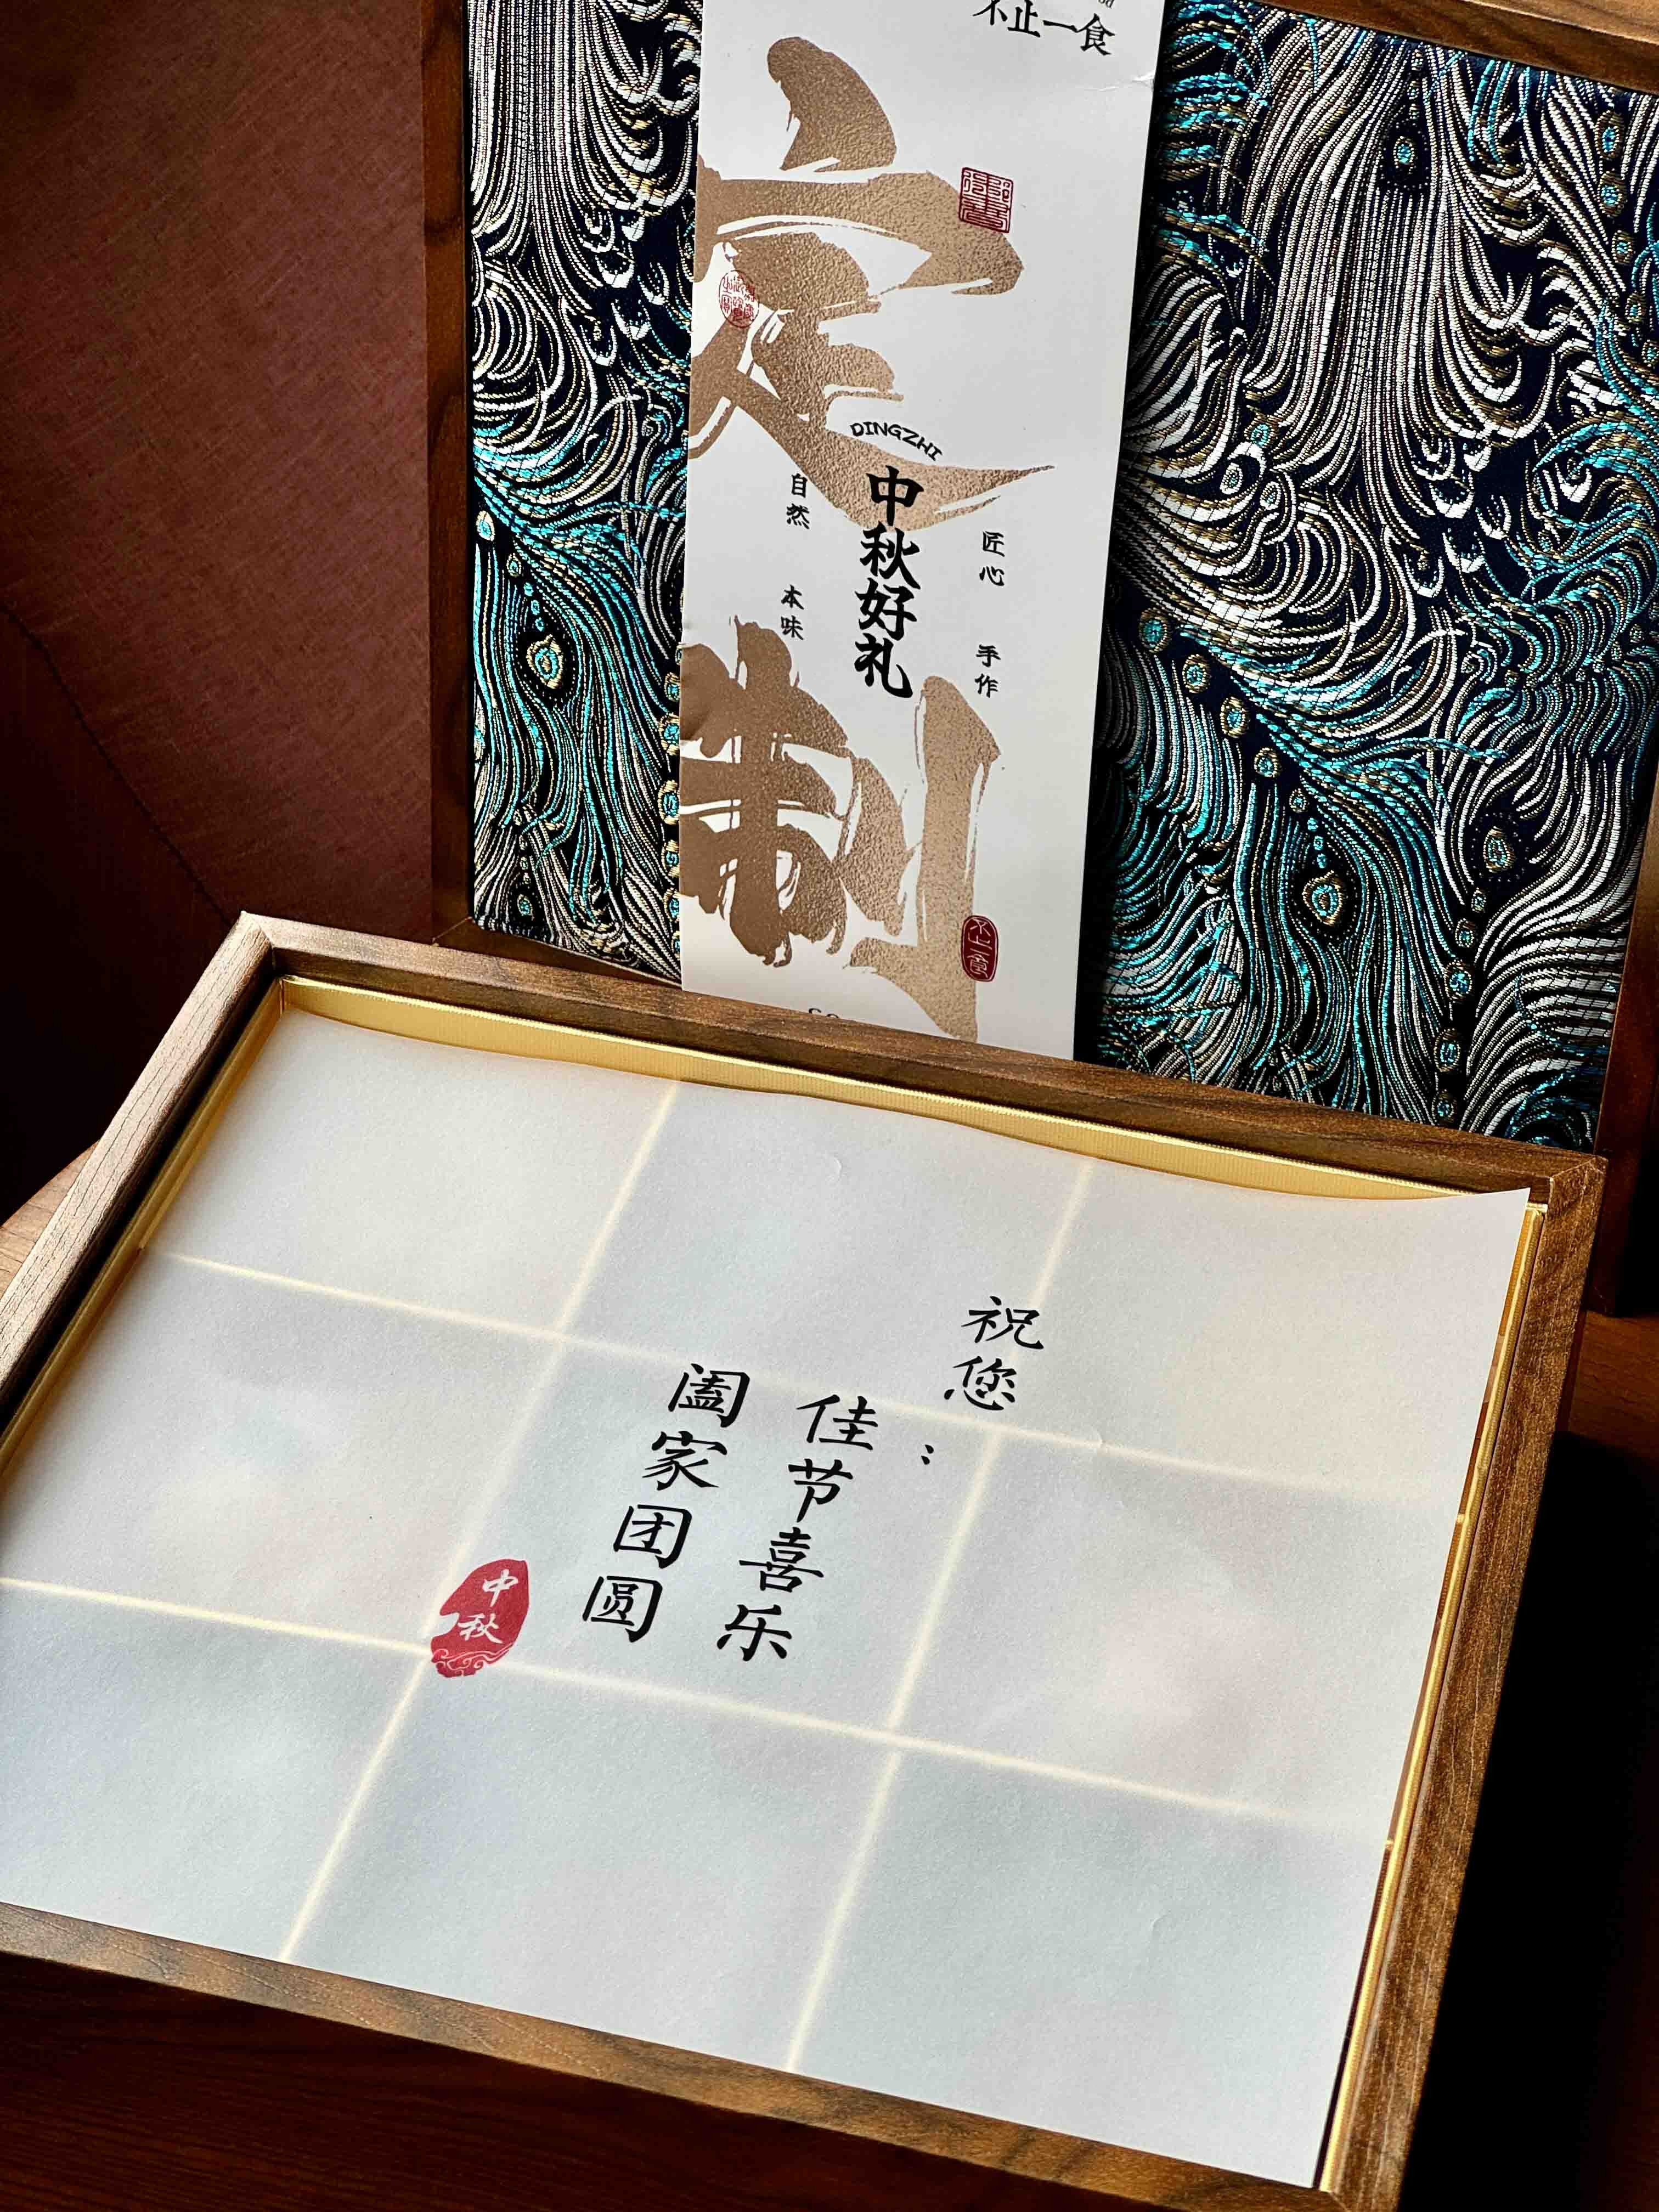 不止一食
定制
DINGZHI
中秋好礼
匠心 手作
自然 本味
不止一食
祝您：
佳节喜乐
阖家团圆
中秋